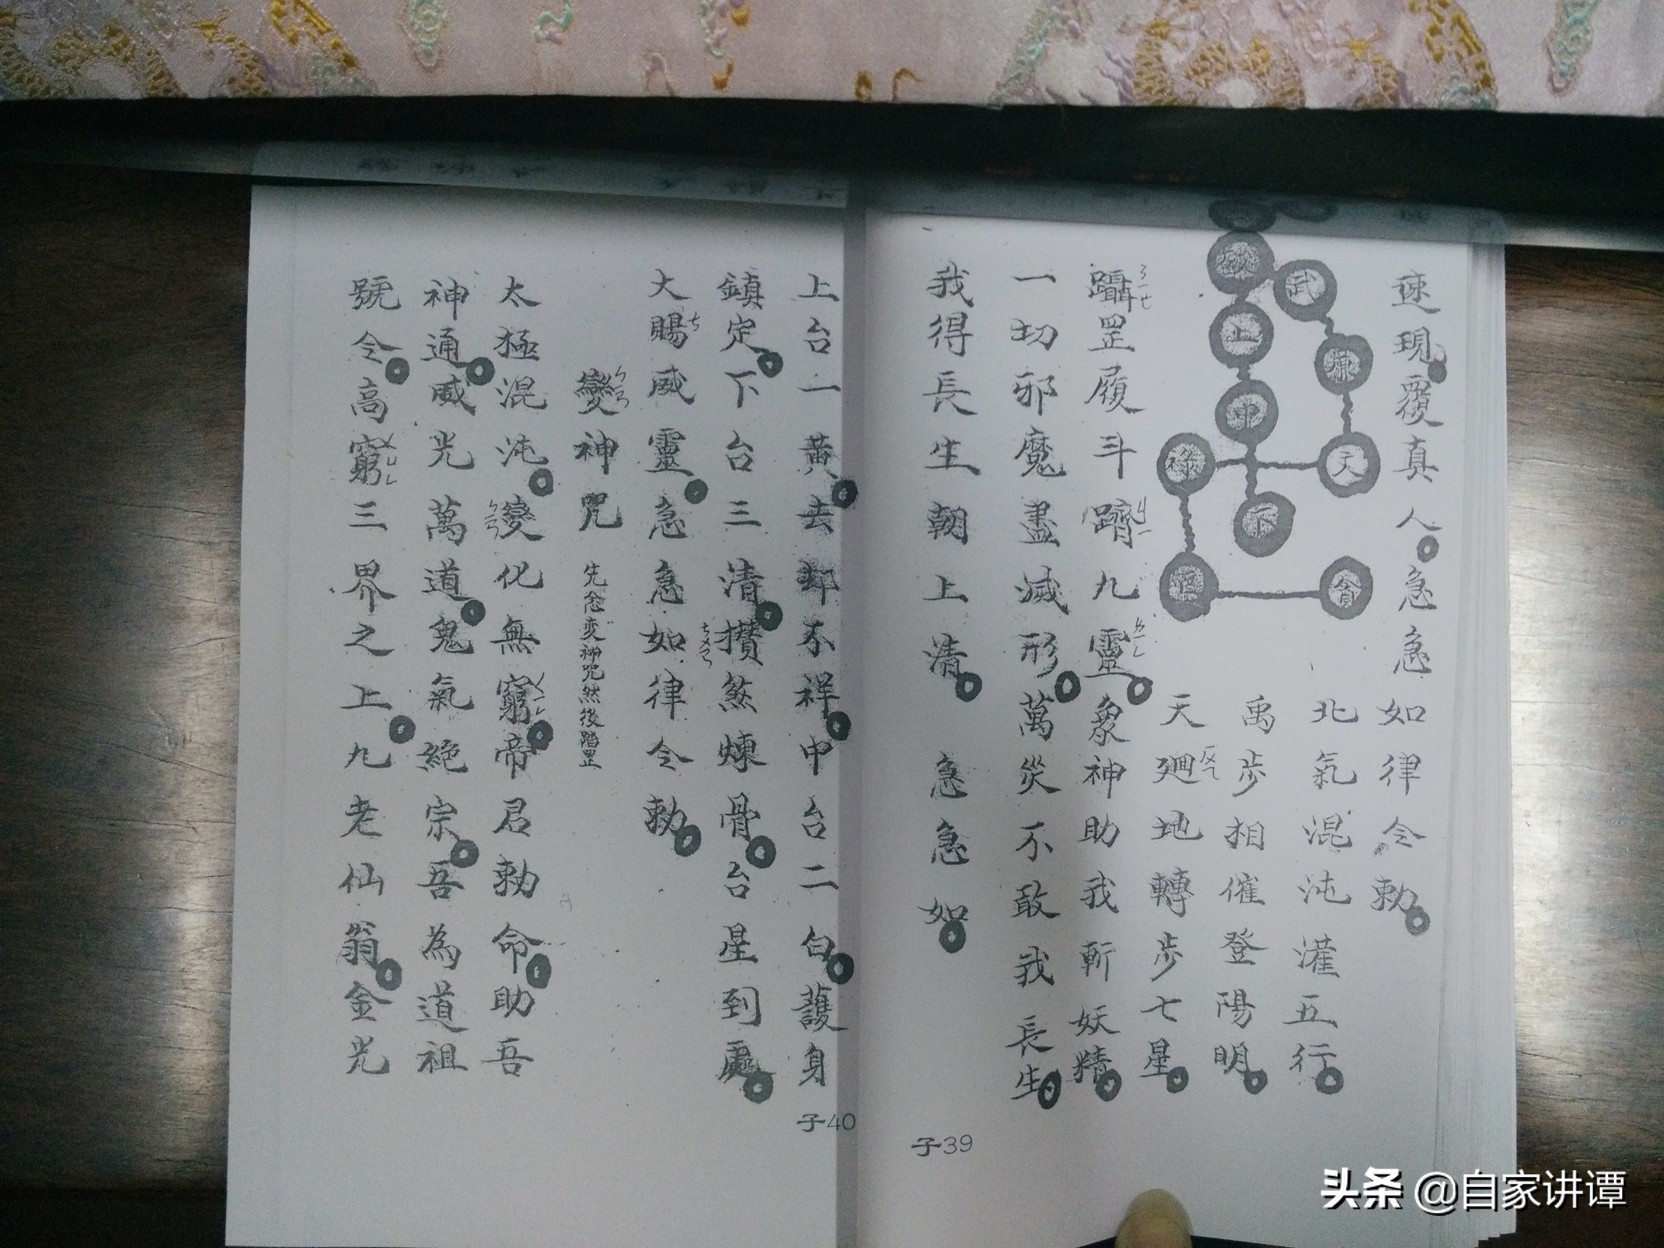 速現覆真人急急如律令勅
武
上
中
祿
天
下
貪
北氣混沌灌五行
禹步相催登陽明
天廻地轉步七星
躡罡履斗躋九靈
象神助我斬妖精
一切邪魔盡滅形萬災不敢我長生
我得長生朝上清 急急如
子39
上台一黃去却不祥中台二白護身
鎮定下台三清攢煞煉骨台星到處
大賜威靈急急如律令勅
變神咒 先念変神咒然後踏罡
太極混沌變化無窮帝君勅命助吾
神通威光萬道鬼氣絕宗吾為道祖
號令高窮三界之上九老仙翁金光
子40
头条 @自家讲谭